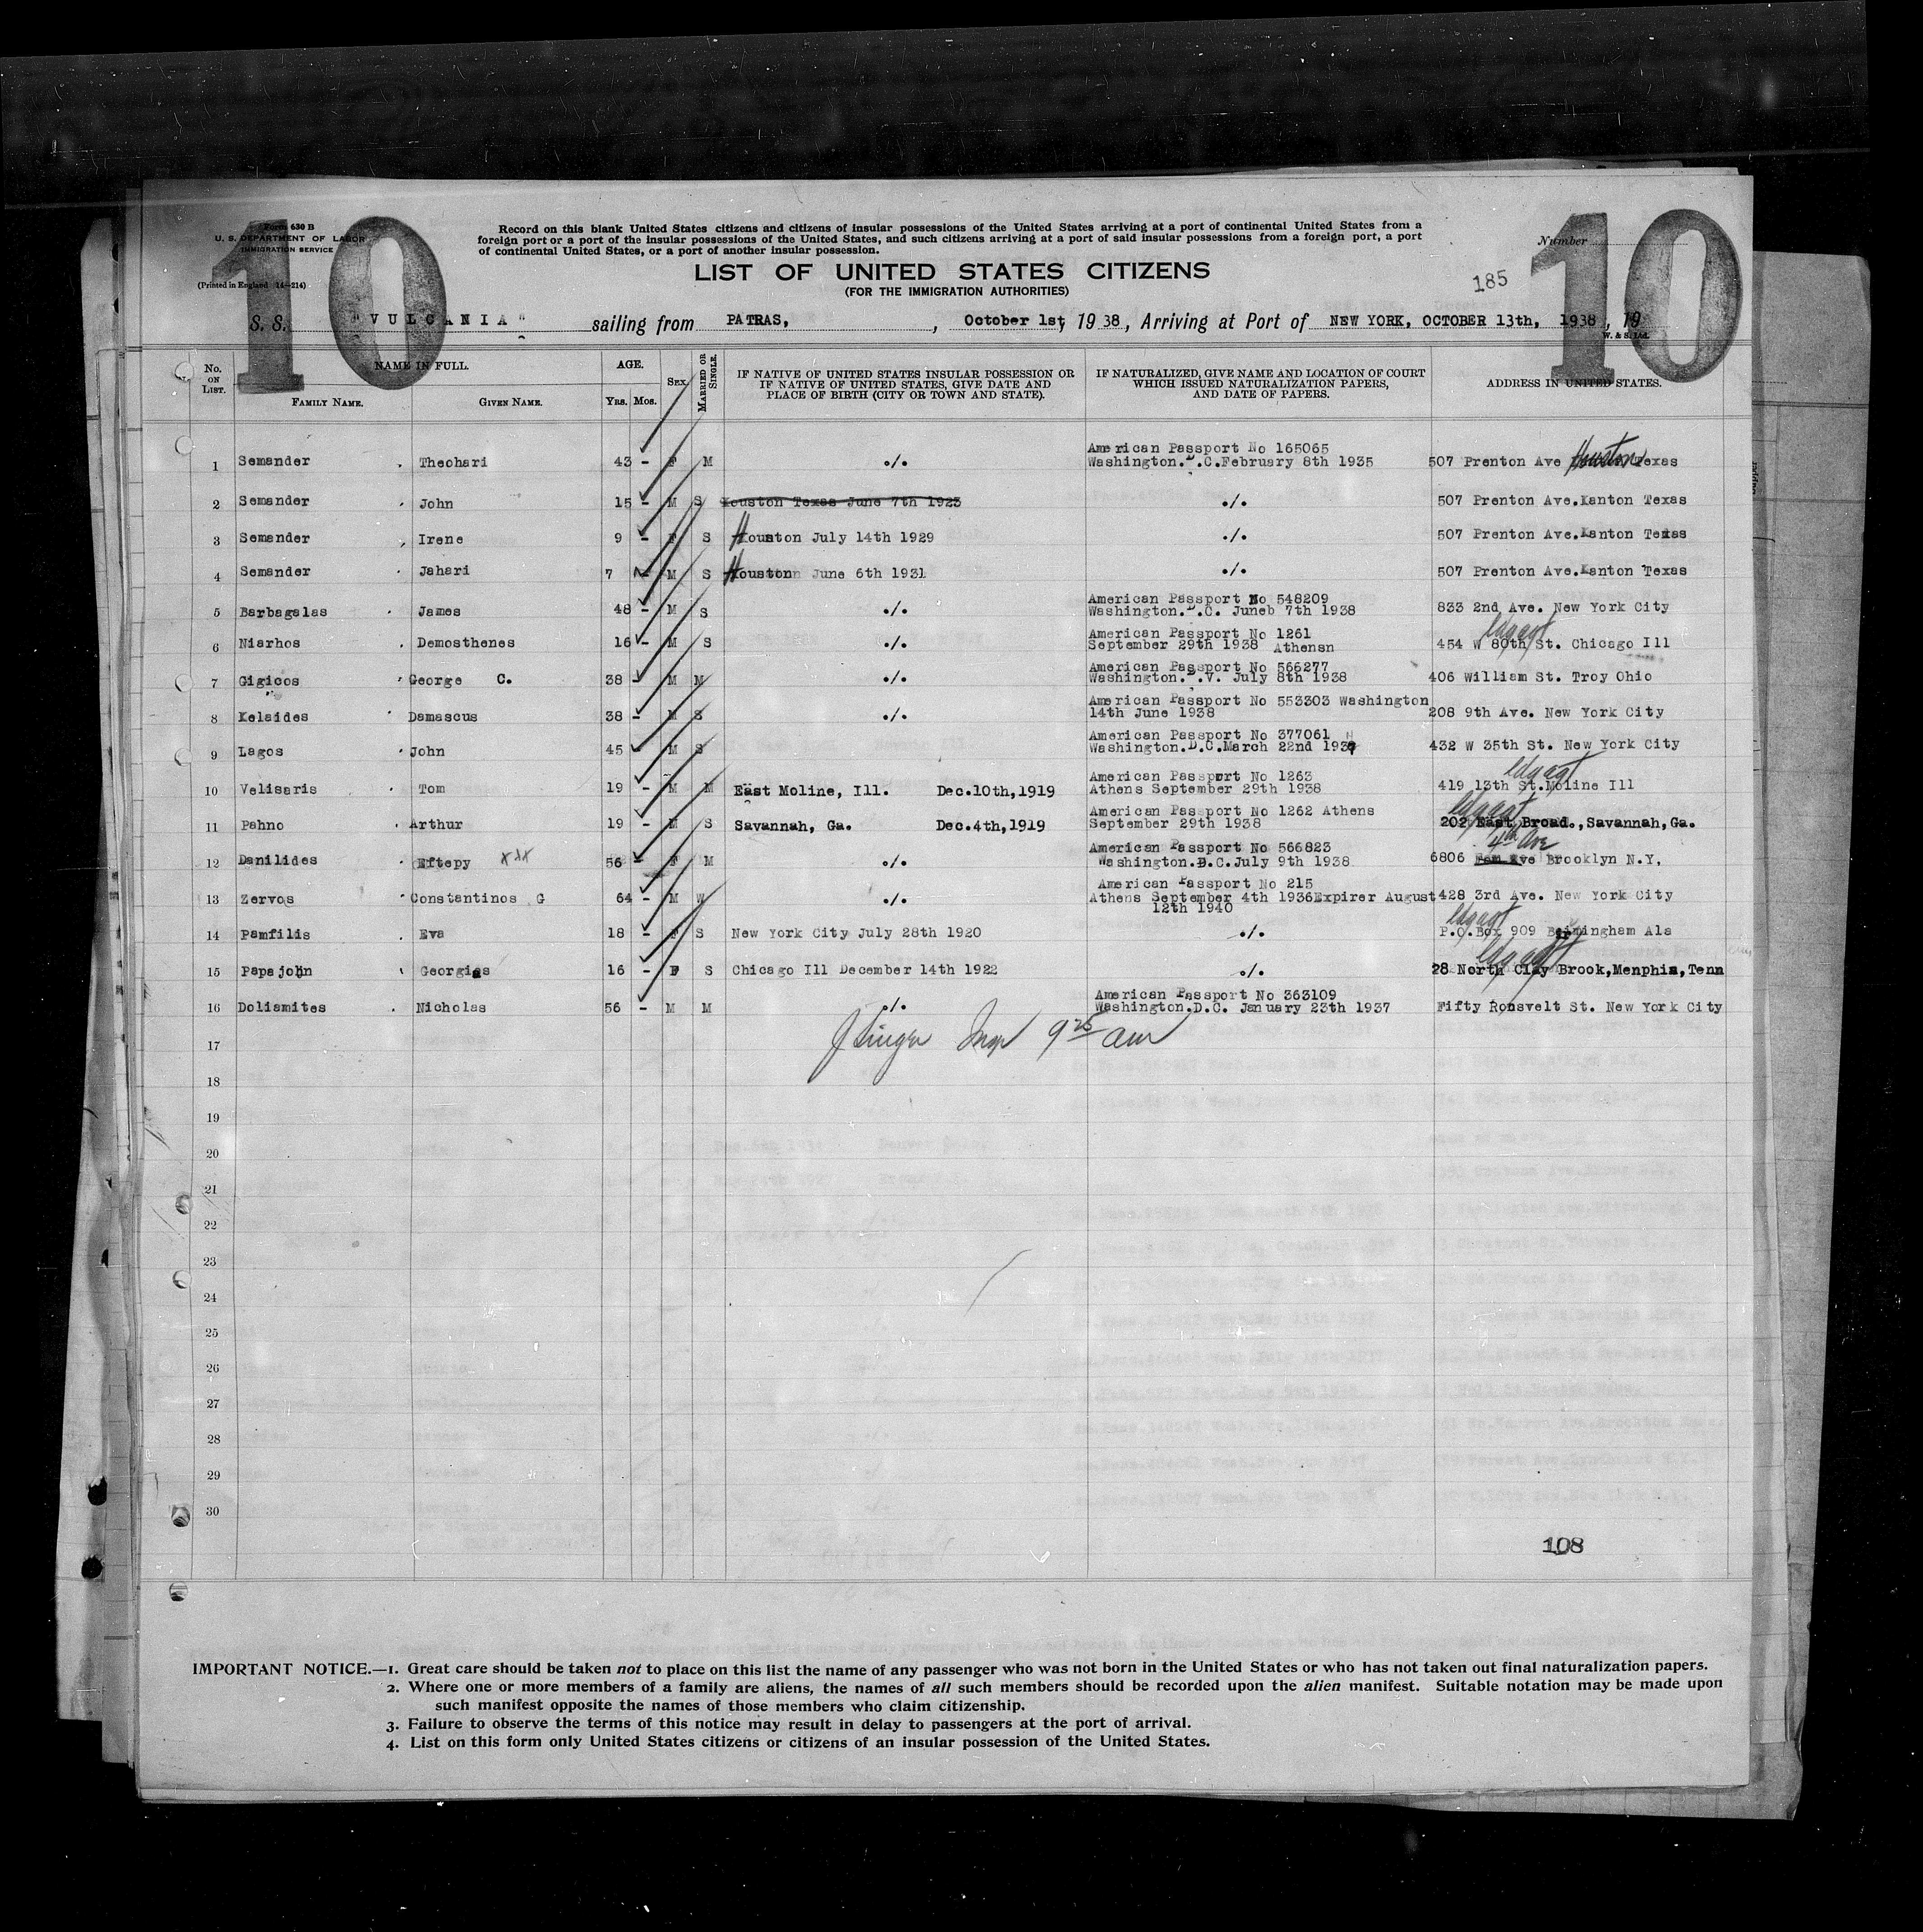 10
10
Form 630 B
U. S. DEPARTMENT OF LABOR
IMMIGRATION SERVICE
(Printed in England 14—214)
Record on this blank United States citizens and citizens of insular possessions of the United States arriving at a port of continental United States from a
foreign port or a port of the insular possessions of the United States, and such citizens arriving at a port of said insular possessions from a foreign port, a port
of continental United States, or a port of another insular possession.
Number
LIST OF UNITED STATES CITIZENS
(FOR THE IMMIGRATION AUTHORITIES)
185
S. S. "VULCANIA" sailing from PATRAS, , October 1st, 1938, Arriving at Port of NEW YORK, OCTOBER 13th, 1938, 19
W. & S. Ltd.
No. ON LIST. NAME IN FULL. FAMILY NAME. GIVEN NAME. AGE. Yrs. Mos. SEX. MARRIED OR SINGLE. IF NATIVE OF UNITED STATES INSULAR POSSESSION OR IF NATIVE OF UNITED STATES, GIVE DATE AND PLACE OF BIRTH (CITY OR TOWN AND STATE). IF NATURALIZED, GIVE NAME AND LOCATION OF COURT WHICH ISSUED NATURALIZATION PAPERS, AND DATE OF PAPERS. ADDRESS IN UNITED STATES.
1 Semander Theohari 43 - F M o/o American Passport No 165065 Washington.D.C.February 8th 1935 507 Prenton Ave Houston Texas
2 Semander John 15 - M S Houston Texas June 7th 1923 o/o 507 Prenton Ave.Kanton Texas
3 Semander Irene 9 - F S Houston July 14th 1929 o/o 507 Prenton Ave.Kanton Texas
4 Semander Jahari 7 - M S Houston June 6th 1931 o/o 507 Prenton Ave.Kanton Texas
5 Barbagalas James 48 - M S o/o American Passport No 548209 Washington.D.C. Juneb 7th 1938 833 2nd Ave. New York City
6 Niarhos Demosthenes 16 - M S o/o American Passport No 1261 September 29th 1938 Athensn 454 W 80th St. Chicago Ill
7 Gigicos George C. 38 - M M o/o American Passport No 566277 Washington.D.V. July 8th 1938 406 William St. Troy Ohio
8 Kelaides Damascus 38 - M S o/o American Passport No 553303 Washington 14th June 1938 208 9th Ave. New York City
9 Lagos John 45 - M S o/o American Passport No 377061 Washington.D.C.March 22nd 1937 432 W 35th St. New York City
10 Velisaris Tom 19 - M M East Moline, Ill. Dec.10th,1919 American Passport No 1263 Athens September 29th 1938 419 13th St.Moline Ill
11 Pahno Arthur 19 - M S Savannah, Ga. Dec.4th,1919 American Passport No 1262 Athens September 29th 1938 202 East Broad.,Savannah,Ga.
12 Danilides Eftepy xxx 56 - F M o/o American Passport No 566823 Washington.D.C.July 9th 1938 6806 4th Ave Brooklyn N.Y.
13 Zervos Constantinos G 64 - M W o/o American Passport No 215 Athens September 4th 1936Expirer August 12th 1940 428 3rd Ave. New York City
14 Pamfilis Eva 18 - F S New York City July 28th 1920 o/o P.O.Box 909 Birmingham Ala
15 Papajohn Georgia 16 - F S Chicago Ill December 14th 1922 o/o 28 North Clay Brook,Menphis,Tenn
16 Doliamites Nicholas 56 - M M o/o American Passport No 363109 Washington.D.C. January 23th 1937 Fifty Ronsvelt St. New York City
17 9 25 am
18
19
20
21
22
23
24
25
26
27
28
29
30
108
IMPORTANT NOTICE.—1. Great care should be taken not to place on this list the name of any passenger who was not born in the United States or who has not taken out final naturalization papers.
2. Where one or more members of a family are aliens, the names of all such members should be recorded upon the alien manifest. Suitable notation may be made upon
such manifest opposite the names of those members who claim citizenship.
3. Failure to observe the terms of this notice may result in delay to passengers at the port of arrival.
4. List on this form only United States citizens or citizens of an insular possession of the United States.